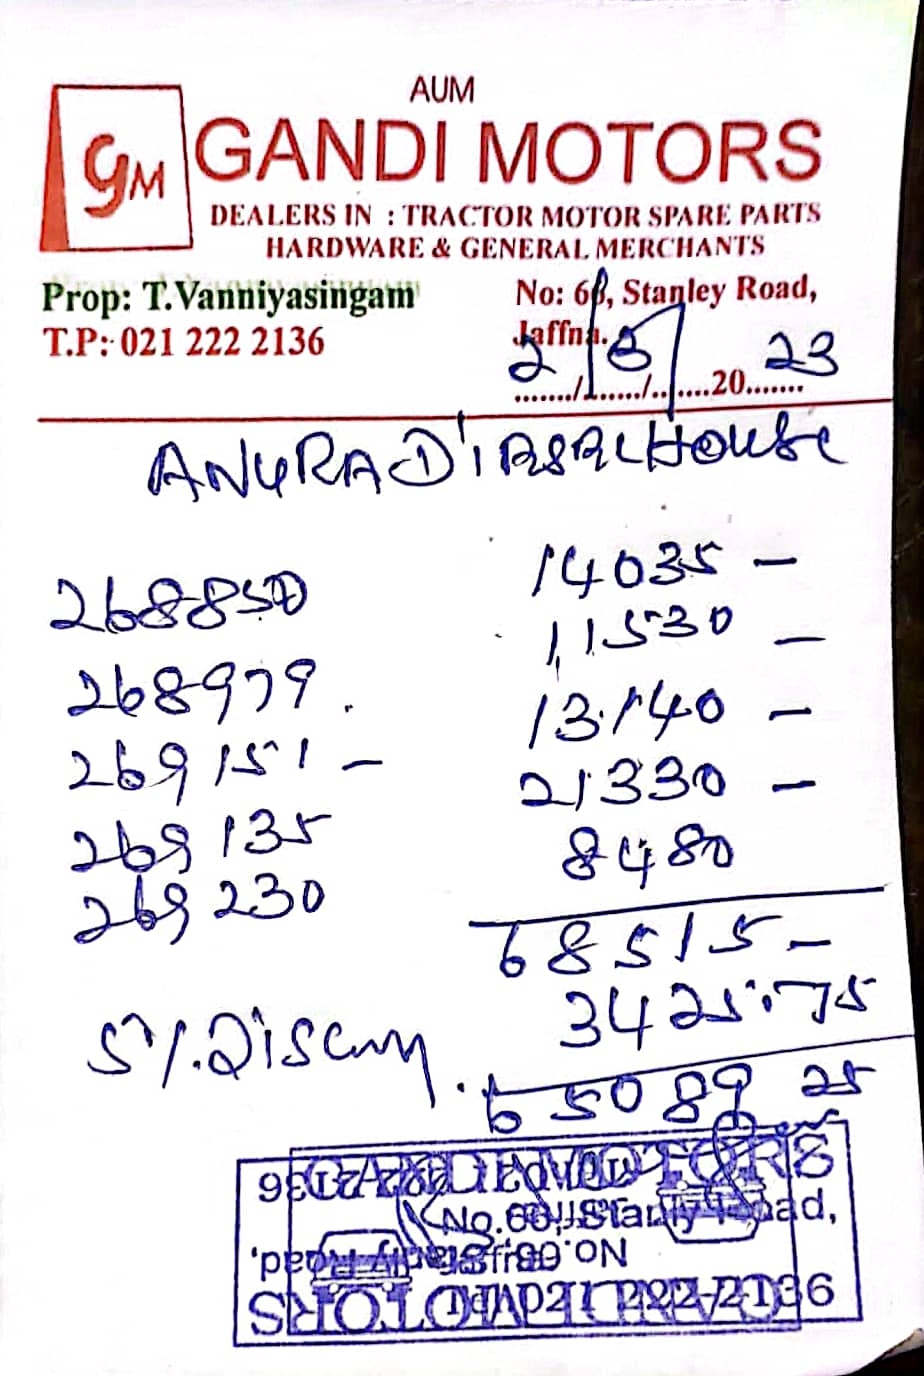 AUM
GM GANDI MOTORS
DEALERS IN : TRACTOR MOTOR SPARE PARTS
HARDWARE & GENERAL MERCHANTS
Prop: T.Vanniyasingam
T.P:- 021 222 2136
No: 68, Stanley Road,
Jaffna.
2/3/2023
ANURA DIESEL HOUSE
268850 14035 -
268979 . 11530 -
269151 - 13140 -
269135 21330 -
269230 8480
68515 -
5%. 3425.75
65089 25
GANDI MOTORS
Road,
021 222 2136